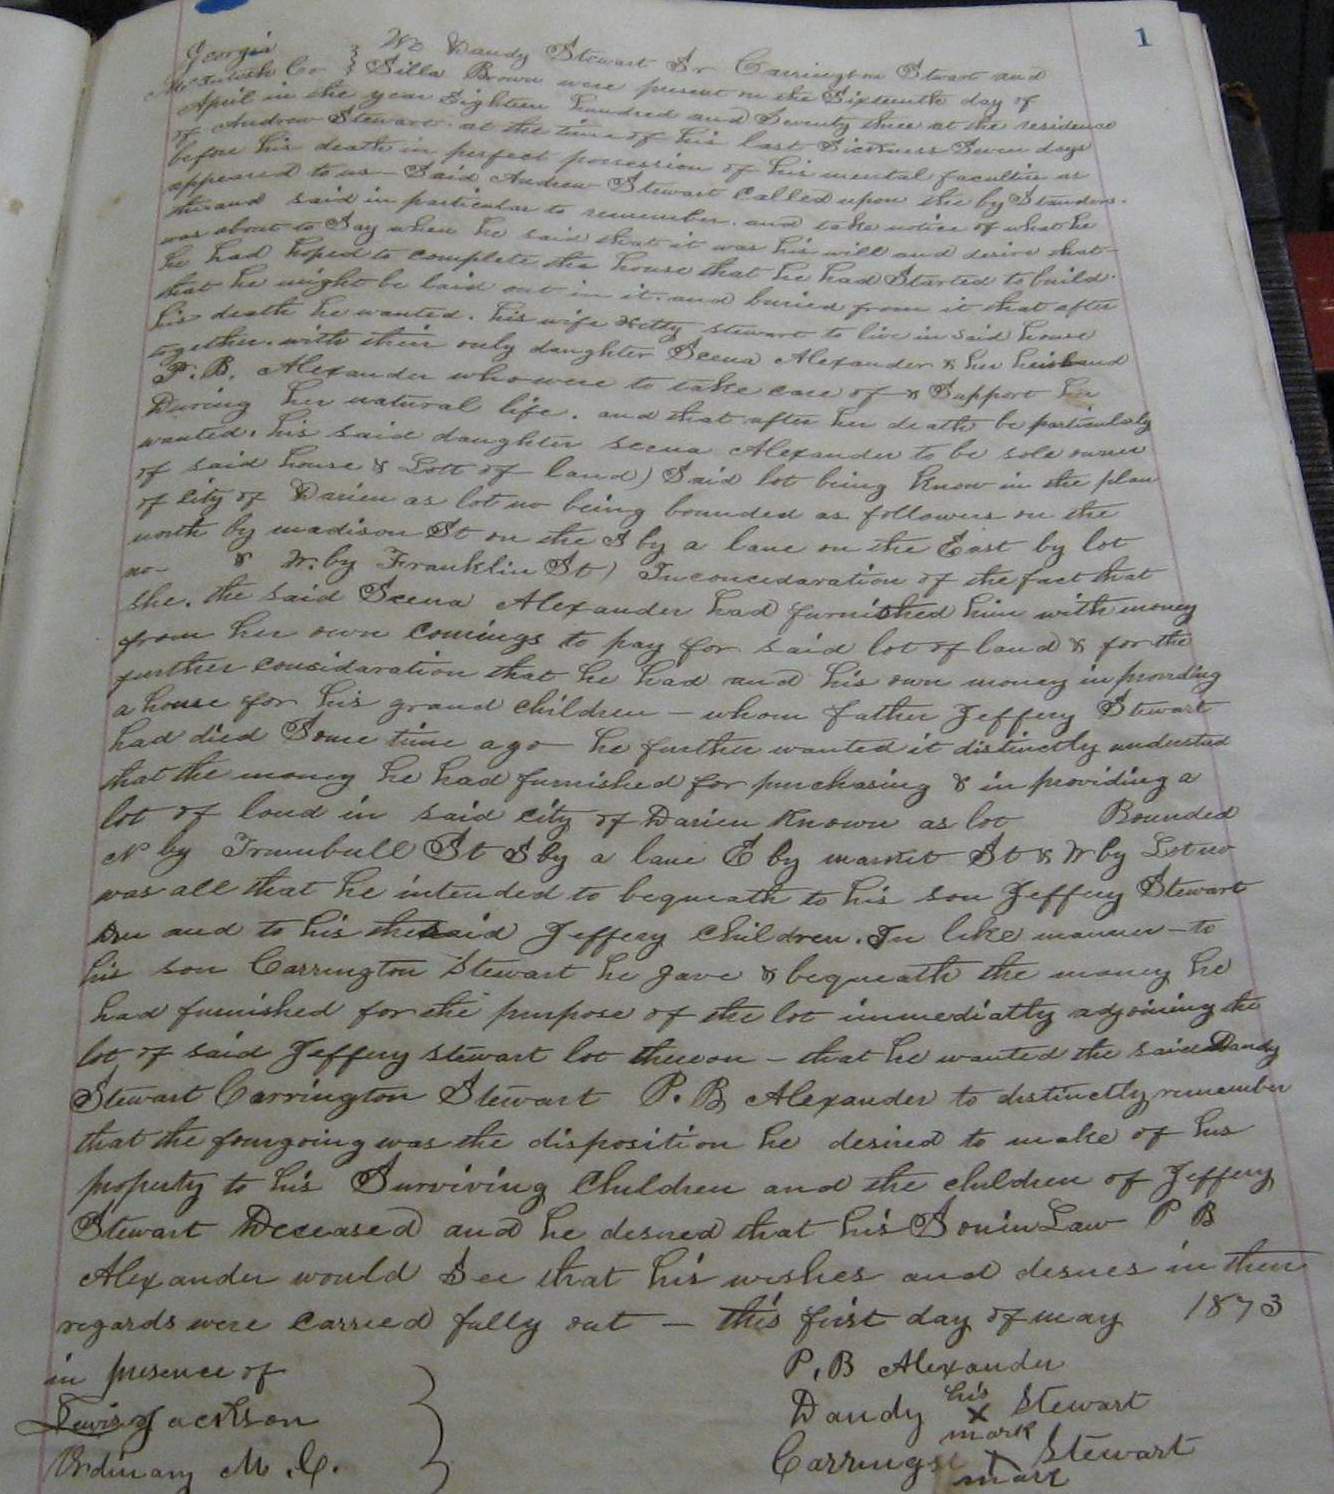 1
Georgia } We Dandy Stewart Sr Carrington Stwart and
McIntosh Co } Silla Brown were present on the Sixteenth day of
April in the year Eighteen hundred and Seventy three at the residence
of Andrew Stewart. at the time of his last Sickness Seven days
before his death in perfect possession of his mental faculties as
appeared to us – Said Andrew Stewart called upon the by Standers.
the and said in particular to remember. and take notice of what he
was about to Say when he said that it was his will and desire that
he had hoped to complete the house that he had Started to build.
that he might be laid out in it. and buried from it that after
his death he wanted. his wife Kitty stewart to live in said house
together. with their only daughter Scena Alexander & her husband
P. B. Alexander who were to take care of & Support her
During her natural life. and that after her death he particularly
wanted. his said daughter scena Alexander to be sole owner
of said house & Lott of land) Said lot being know in the plan
of City of Darien as lot no being bounded as followers on the
north by madison St on the S by a lane on the East by lot
no – & W. by Franklin St) Inconcedaration of the fact that
she. the said Scena Alexander had furnished him with money
from her own comings to pay for said lot of land & for the
further considaration that he had and his own money in providing
a house for his grand children – whom father Jeffery Stewart
had died Some time ago – he further wanted it distinctly understud
that the money he had furnished for purchasing & in providing a
lot of land in said city of Darien Known as lot Bounded
N by Trumbull St S by a lane E by market St & W by Lot no
was all that he intended to bequeath to his son Jeffery Stewart
and to his the said Jeffery children. In like manner – to
his son Carrington Stewart he gave & bequeath the money he
had furnished for the purpose of the lot immediatly adjoining the
lot of said Jeffery stewart lot thereon – that he wanted the said Dandy
Stewart Carrington Stewart P. B. Alexander to distinctly remember
that the fourgoing was the disposition he desired to make of his
property to his Surviving Children and the children of Jeffery
Stewart Deceased and he desired that his Son in Law P B
Alexander would See that his wishes and desires in then
regards were carried fully out – this first day of may 1873
in presence of } P. B Alexander
Lewis Jackson } Dandy his X mark Stewart
Ordinary M. C. } Carrings X mark Stewart